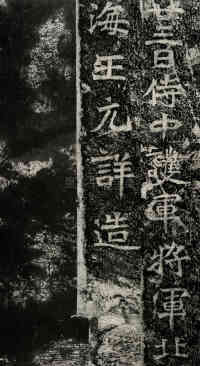 廿三日侍中護軍將軍北
海王元詳造